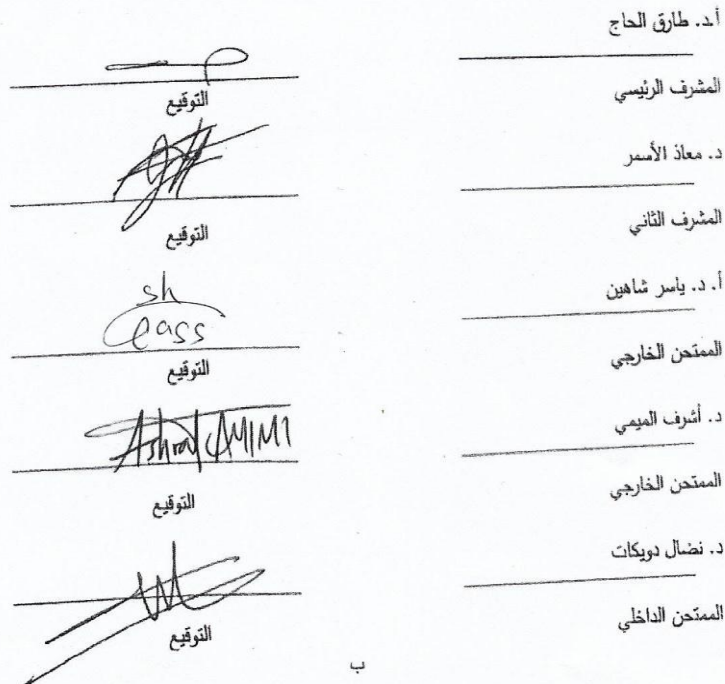 أ.د. طارق الحاج
المشرف الرئيسي
التوقيع
د. معاذ الأسمر
المشرف الثاني
التوقيع
أ. د. ياسر شاهين
الممتحن الخارجي
sh
eass
التوقيع
د. أشرف الميمي
الممتحن الخارجي
Ashraf AMIMI
التوقيع
د. نضال دويكات
الممتحن الداخلي
التوقيع
ب